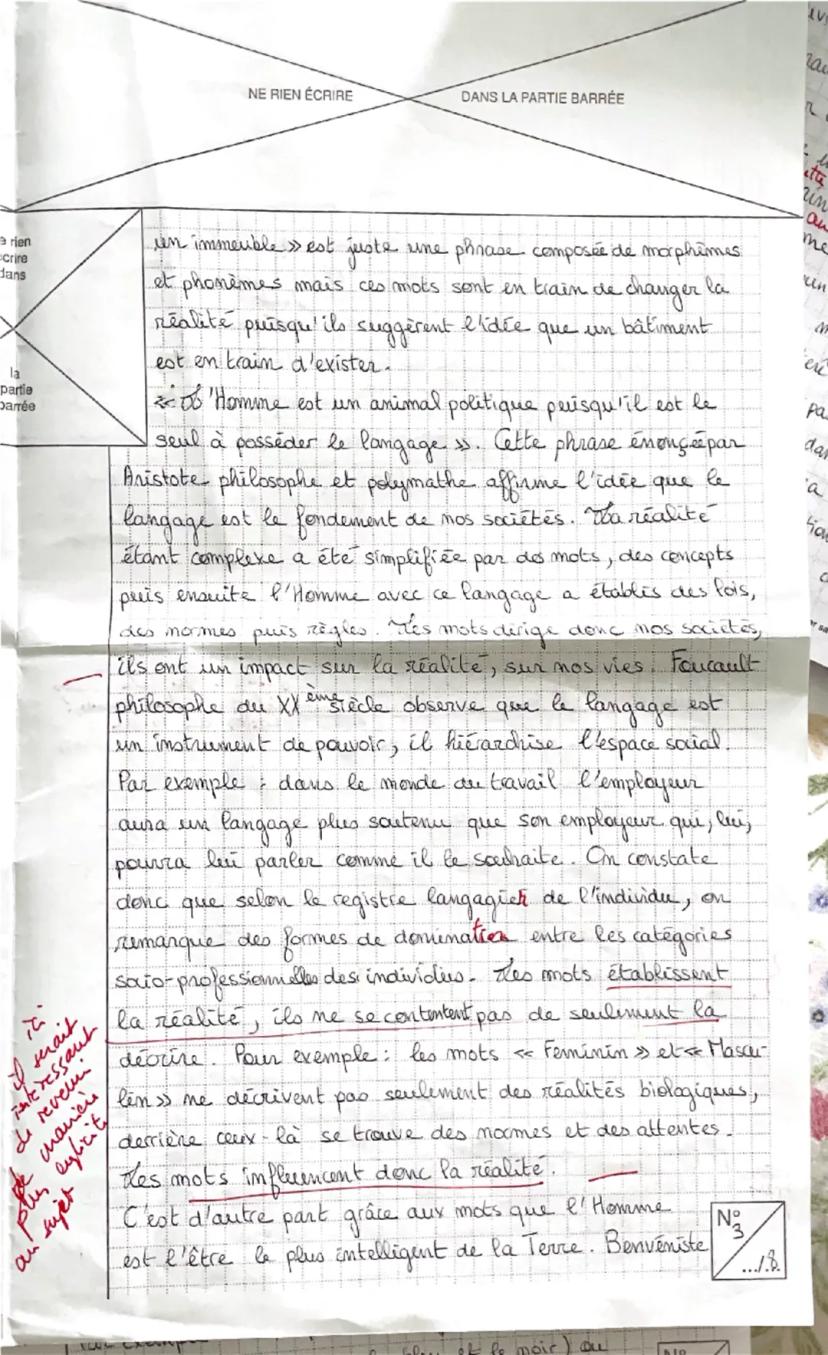 NE RIEN ÉCRIRE DANS LA PARTIE BARRÉE
rien
dans
la
partie
un immeuble » est juste une phrase composée de morphèmes
et phonèmes mais ces mots sont en train de changer la
réalité puisqu'ils suggèrent l'idée que un bâtiment
est en train d'exister.
« L'Homme est un animal politique puisqu'il est le
seul à posséder le langage ». Cette phrase énonçée par
Aristote philosophe et polymathe affirme l'idée que le
langage est le fondement de nos sociétés. La réalité
étant complexe a été simplifiée par des mots, des concepts
puis ensuite l'Homme avec ce langage a établis des lois,
des normes puis règles. Les mots dirige donc nos sociétés,
ils ont un impact sur la réalité, sur nos vies. Foucault
philosophe du XXème siècle observe que le langage est
un instrument de pouvoir, il hiérarchise l'espace social.
Par exemple : dans le monde du travail l'employeur
aura un langage plus soutenu que son employeur qui, lui,
pourra lui parler comme il le souhaite. On constate
donc que selon le registre langagier de l'individu, on
remarque des formes de domination entre les catégories
socio-professionnelles des individus. Les mots établissent
la réalité, ils ne se contentent pas de seulement la
décrire. Pour exemple : les mots « Feminin » et « Mascu-
lin » ne décrivent pas seulement des réalités biologiques,
derrière ceux-là se trouve des normes et des attentes.
Les mots influencent donc la réalité.
C'est d'autre part grâce aux mots que l'Homme
est l'être le plus intelligent de la Terre. Benveniste
ici
il serait
intéressant
de revenir
de manière
plus explicite
au sujet
N°
3
.../8